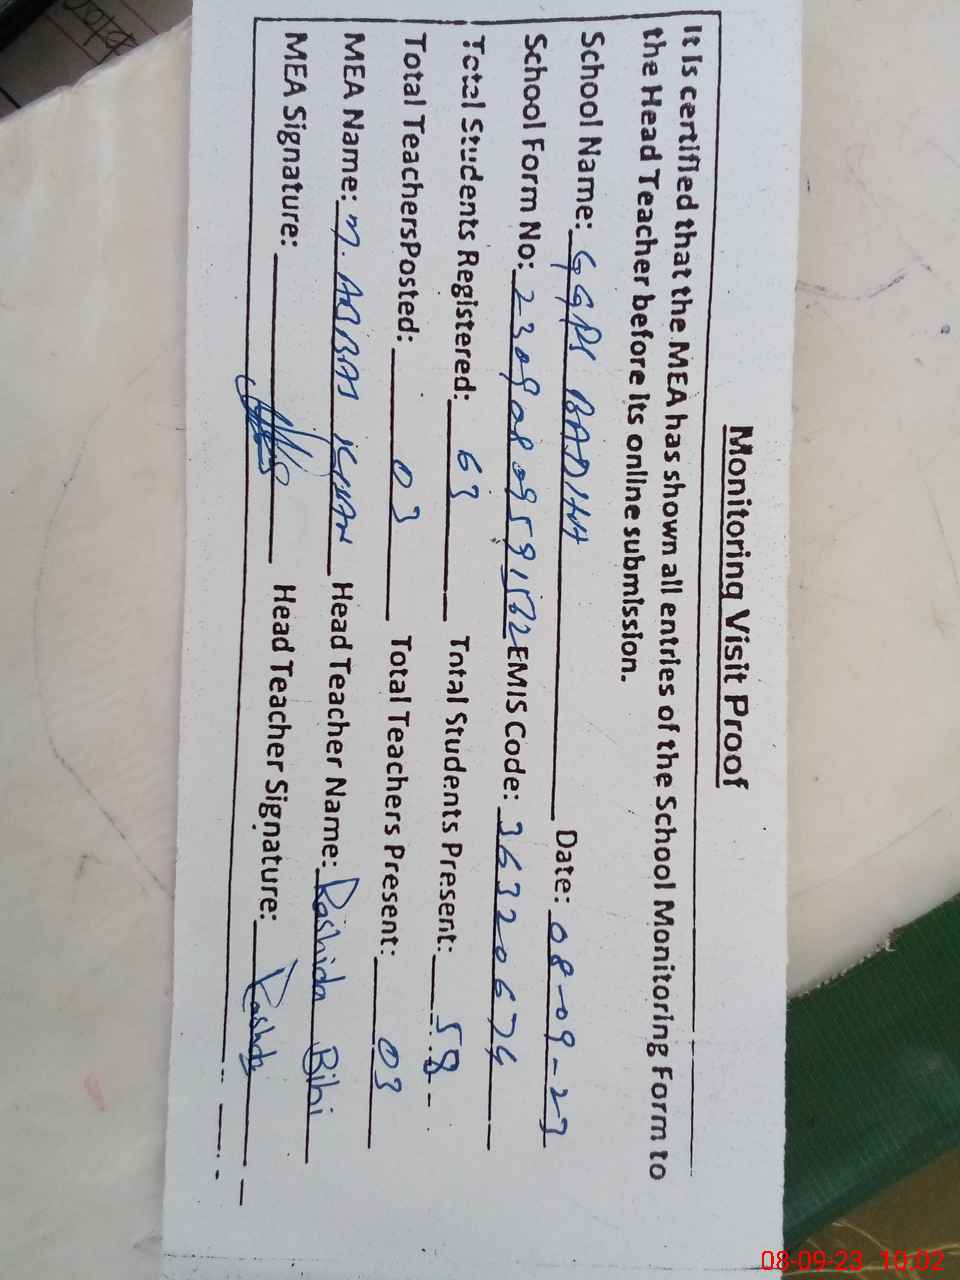 Monitoring Visit Proof
It is certified that the MEA has shown all entries of the School Monitoring Form to
the Head Teacher before its online submission.
School Name: GGPS BADHA Date: 08-09-23
School Form No: EMIS Code: 36320674
Total Students Registered: 63 Total Students Present: 58
Total TeachersPosted: 03 Total Teachers Present: 03
MEA Name: M. ABBAS KHAN Head Teacher Name: Rashida Bibi
MEA Signature: Head Teacher Signature: Rashida
08-09-23 10:02